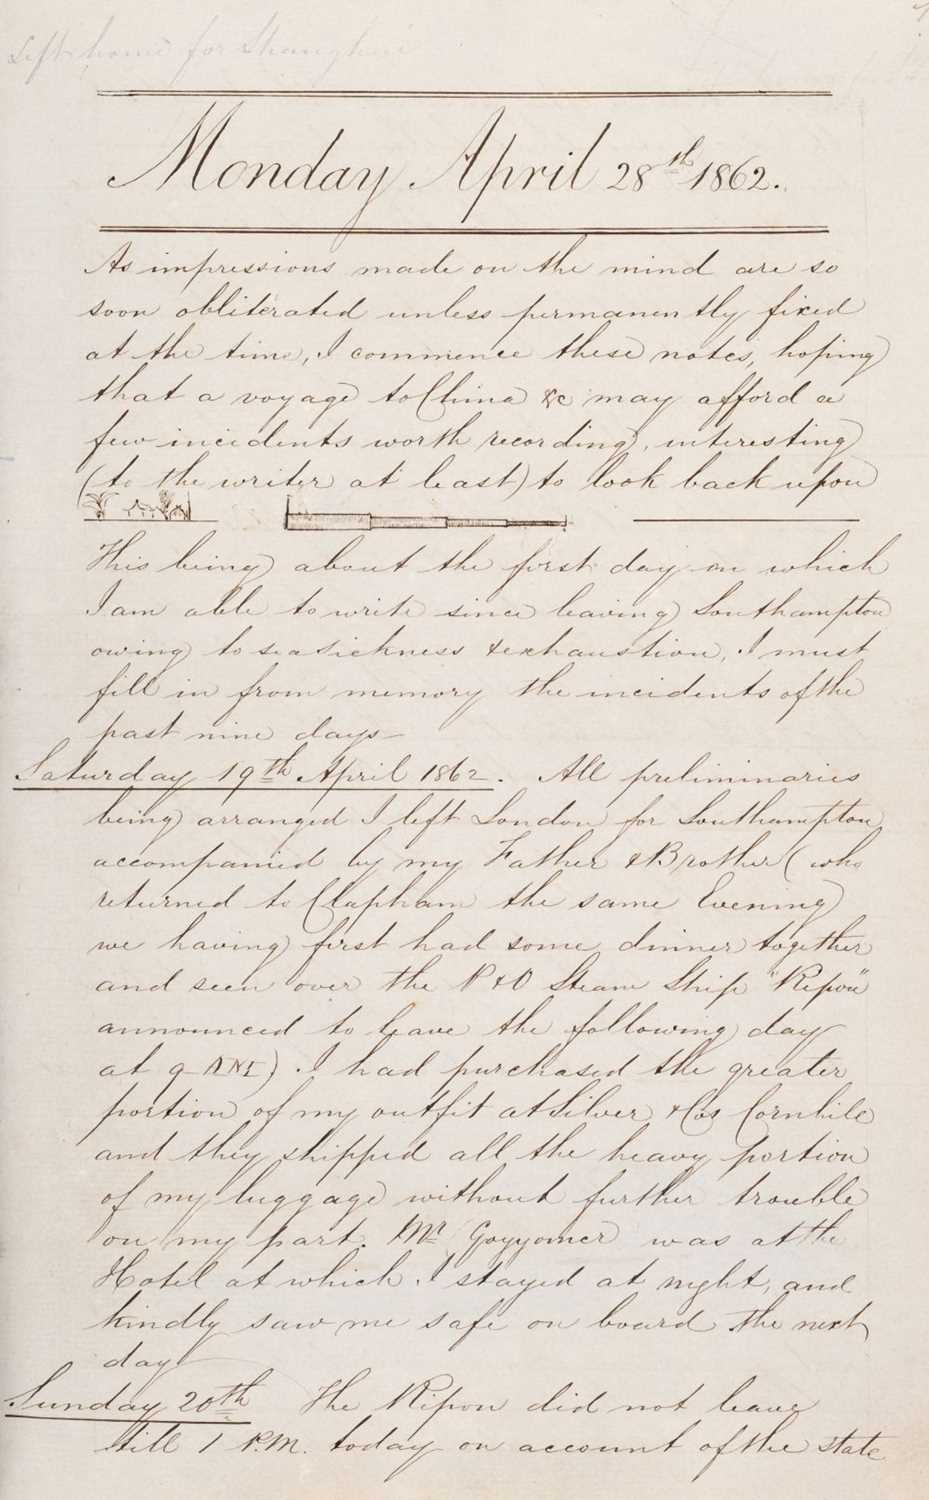 Left home for Shanghai
Monday April 28th 1862.
As impressions made on the mind are so
soon obliterated unless permanently fixed
at the time, I commence these notes, hoping
that a voyage to China &c may afford a
few incidents worth recording, interesting
(to the writer at least) to look back upon
This being about the first day on which
I am able to write since leaving Southampton
owing to seasickness & exhaustion, I must
fill in from memory the incidents of the
past nine days—
Saturday 19th April 1862. All preliminaries
being arranged I left London for Southampton
accompanied by my Father & Brother (who
returned to Clapham the same Evening)
we having first had some dinner together
and seen over the P & O Steam Ship "Ripon"
announced to leave the following day
at 9 AM) I had purchased the greater
portion of my outfit at Silver & Cos Cornhill
and they shipped all the heavy portion
of my luggage without further trouble
on my part. Mr was at the
Hotel at which I stayed at night, and
kindly saw me safe on board the next
day
Sunday 20th The Ripon did not leave
till 1 P.M. today on account of the state